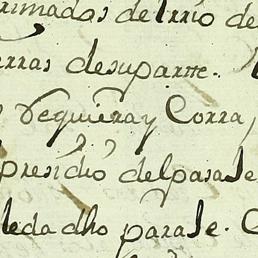 rimados del rrio de
erras desuparrte.
Vequiera y Corra,
presidio delpasase
leda dho parase.